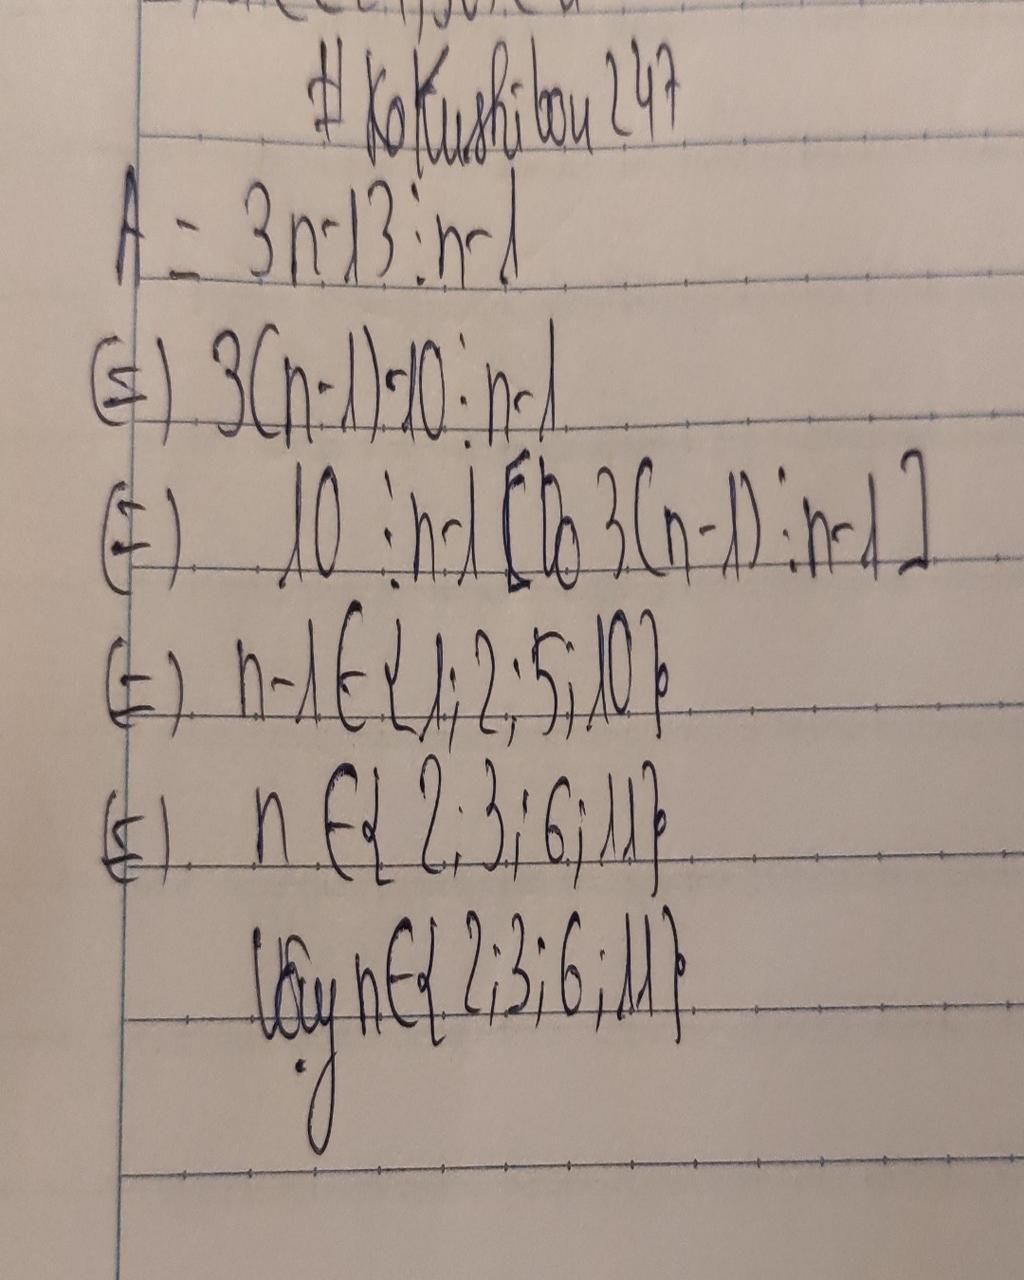 # Kokushibou 247
A = 3n-13 ⋮ n-1
(=) 3(n-1)-10 ⋮ n-1
(=) 10 ⋮ n-1 [Do 3(n-1) ⋮ n-1]
(=) n-1 ∈ {1; 2; 5; 10}
(=) n ∈ { 2; 3; 6; 11}
Vậy n ∈ { 2; 3; 6; 11}